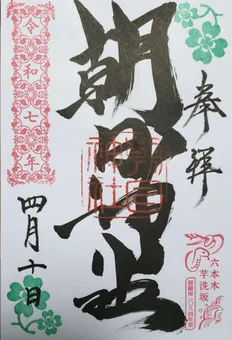 奉拝
六本木
芋洗坂
朝日神社
令和七年
四月十日